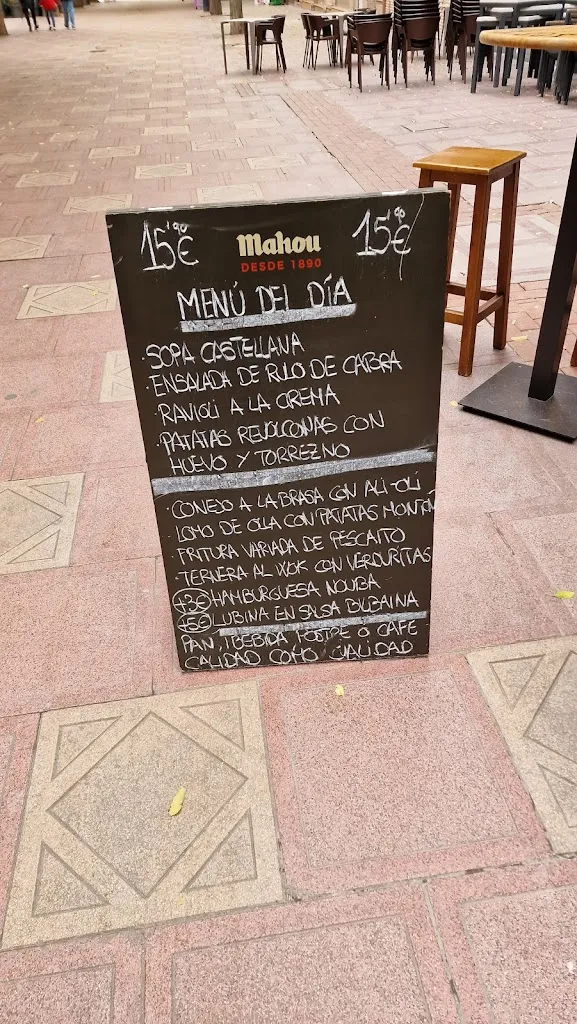 15'90€ Mahou 15'90€
DESDE 1890
MENÚ DEL DÍA
·SOPA CASTELLANA
·ENSALADA DE RULO DE CABRA
·RAVIOLI A LA CREMA
·PATATAS REVOLCONAS CON
HUEVO Y TORREZNO
·CONEJO A LA BRASA CON ALI-OLI
·LOMO DE OLLA CON PATATAS MONTÓN
·FRITURA VARIADA DE PESCAITO
·TERNERA AL WOK CON VERDURITAS
+3€ HAMBURGUESA NOUBA
LUBINA EN SALSA BILBAINA
PAN, 1 BEBIDA POSTRE O CAFE
CALIDAD COMO CUALIDAD